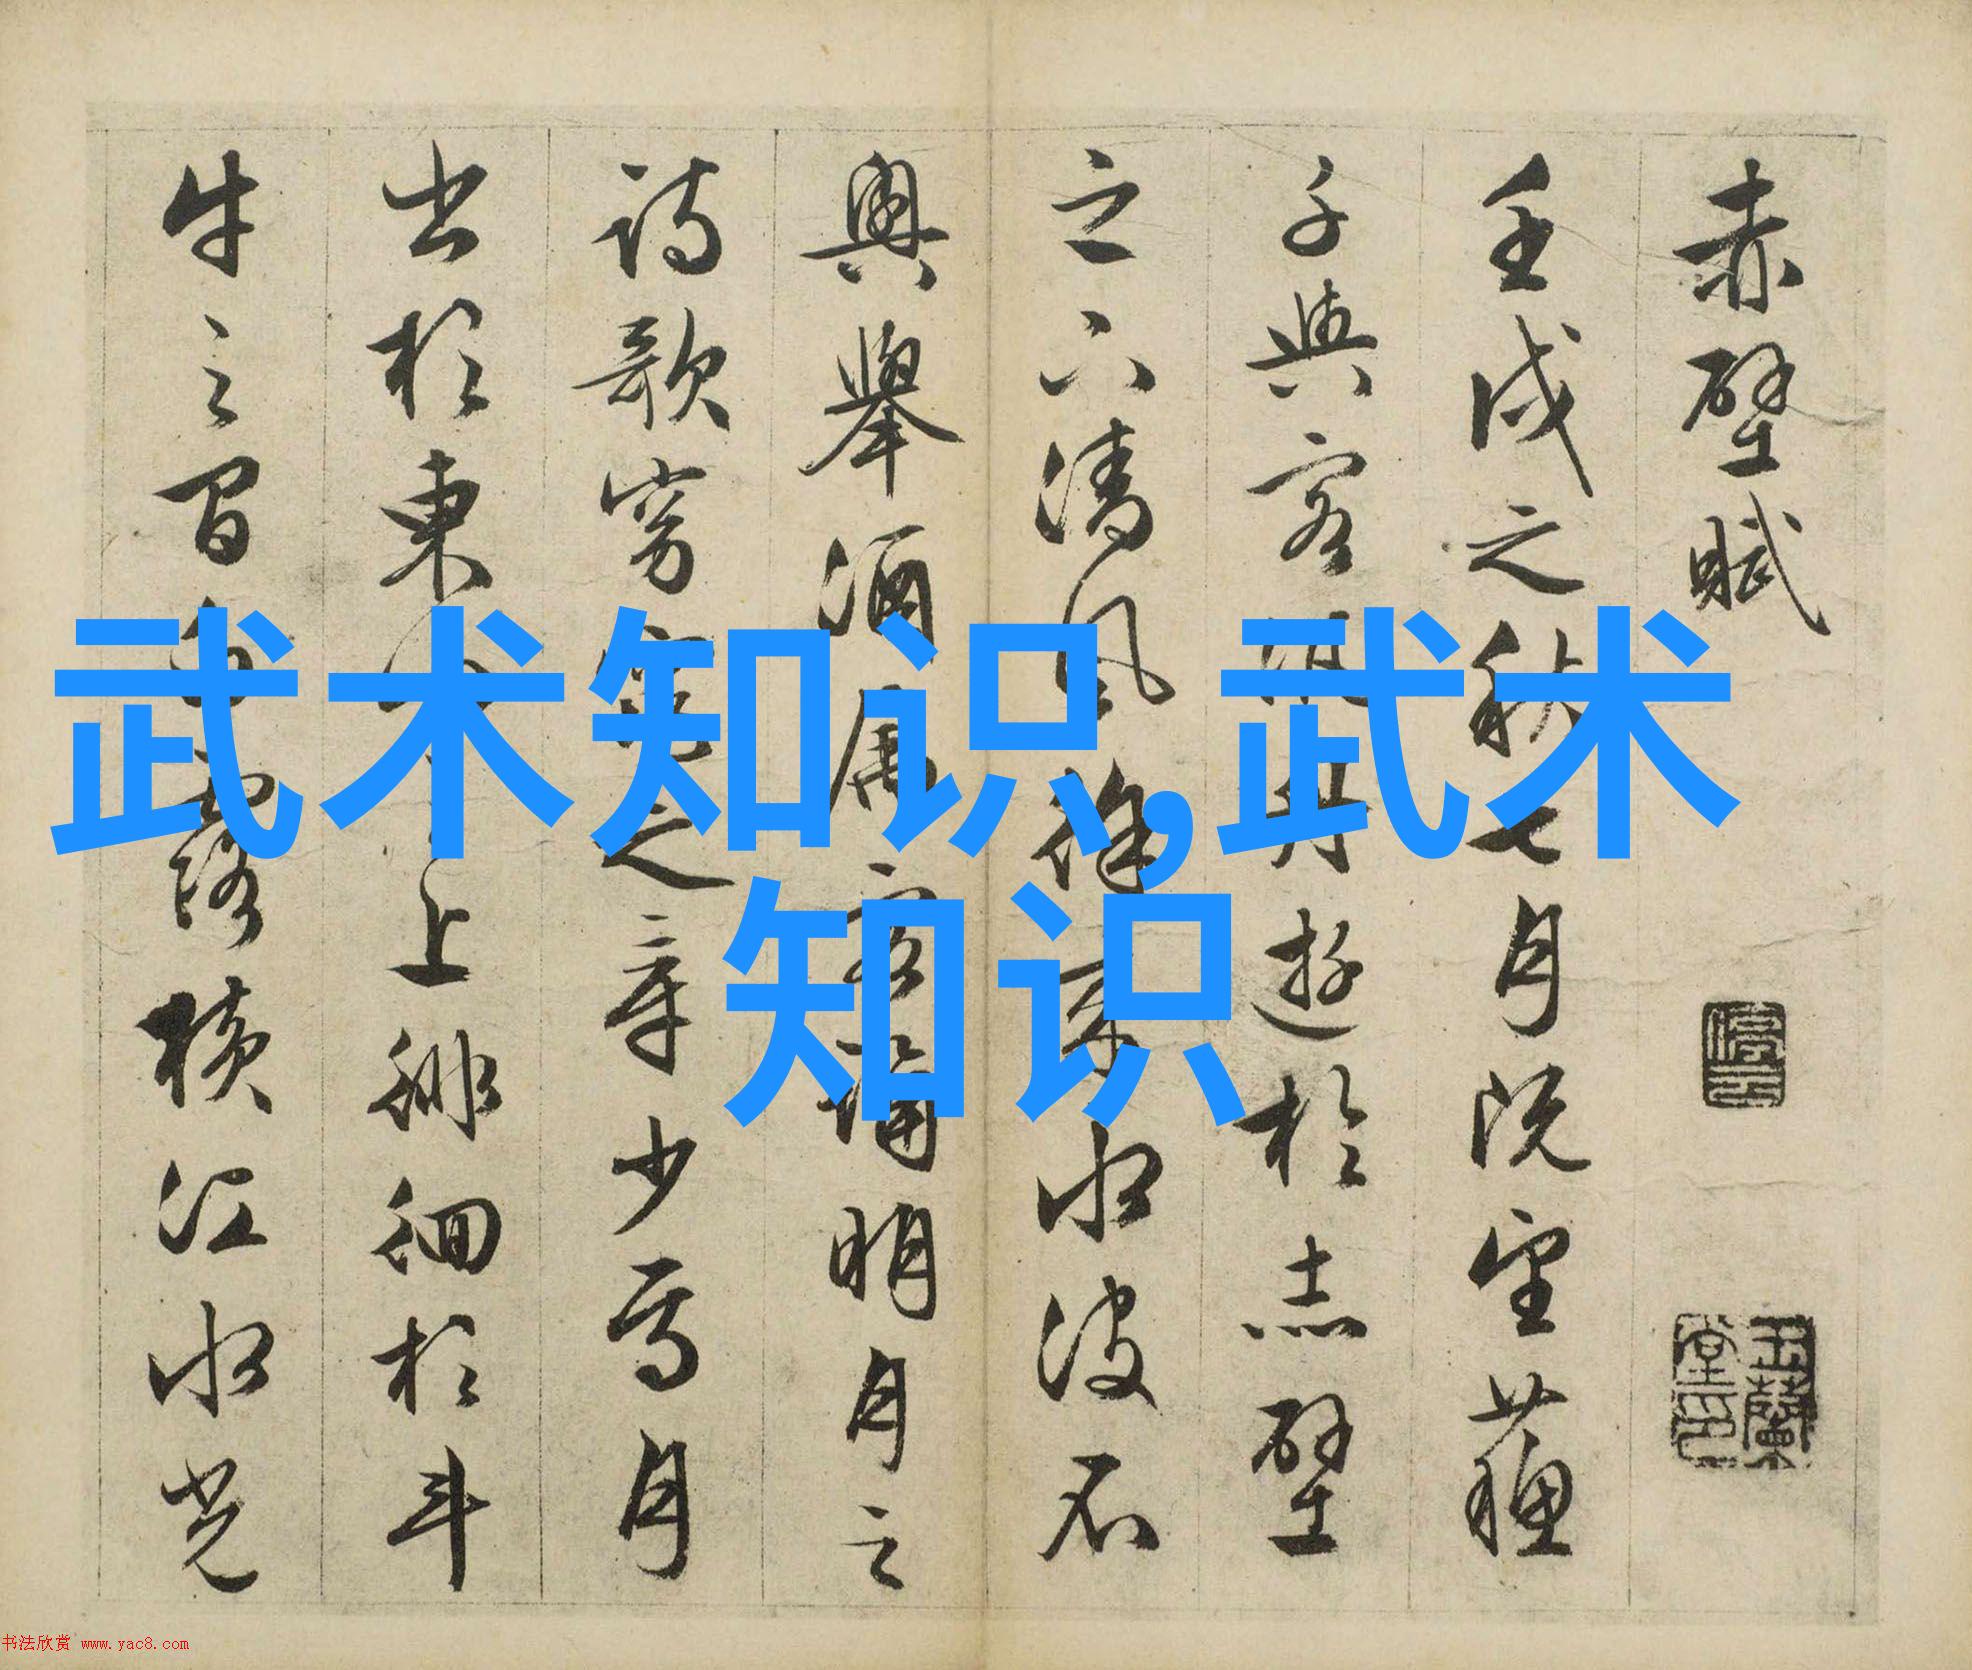 赤壁賦
壬戌之秋七月既望蘇
子與客泛舟遊於赤壁
之下清風徐来水波不
興舉酒属客誦明月之
詩歌窈窕之章少焉月
出於東山之上徘徊於斗
牛之間白露横江水光
武术知识,武术
知识
玉蘭
堂印
停雲
书法欣赏 www.yac8.com